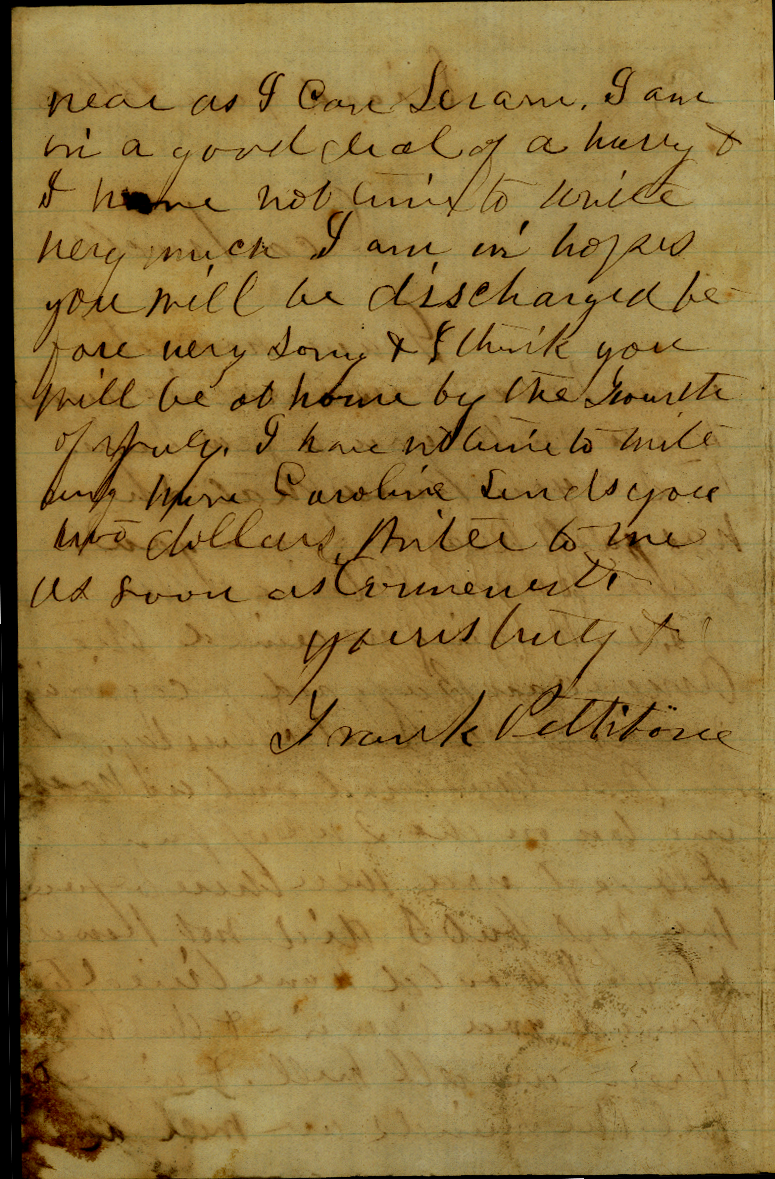 near as I Can Learn. I am
in a good deal of a hurry &
I have not time to write
very much I am in hopes
you will be discharged be-
fore very long & I think you
will be at home by the Fourth
of July. I have not time to write
any more Caroline Sends you
two dollars, Write to me
as soon as Convenient.
yours truly &
Frank Pettibone